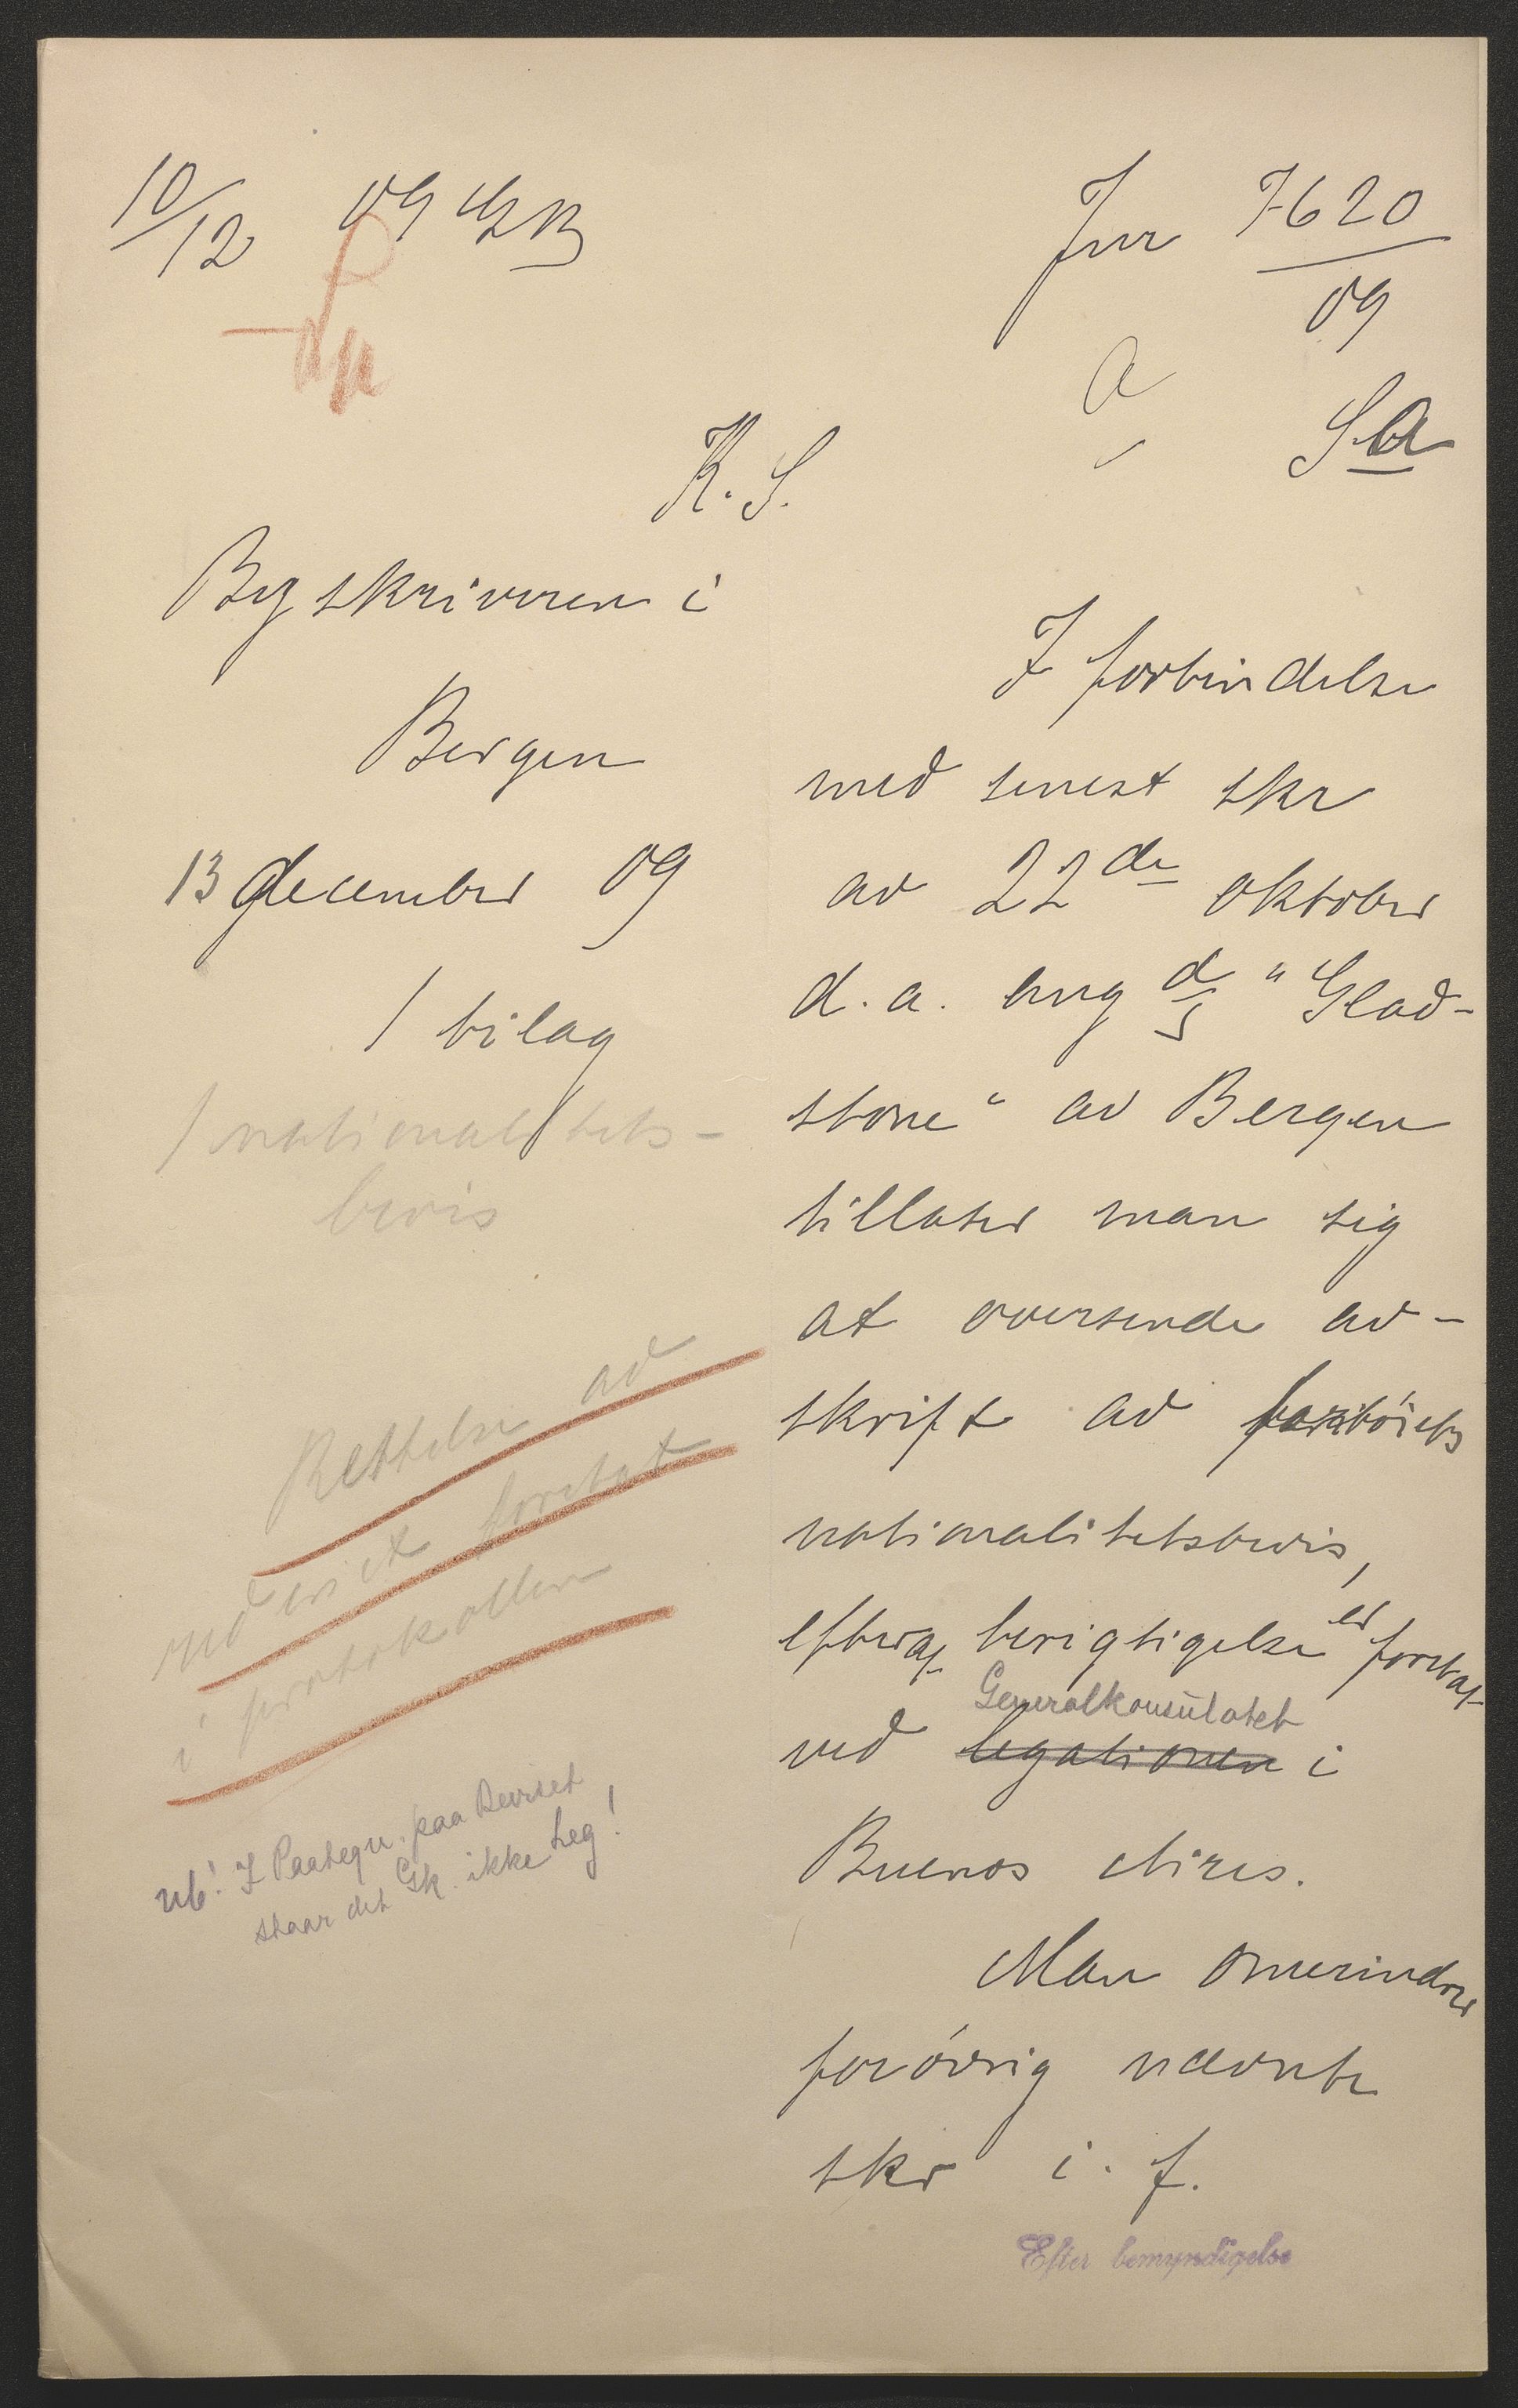 10/12 09
Jnr 7620
09
a
Sa
K. S.
Byskriveren i
Bergen
13 december 09
1 bilag
1 nationalitets-
bevis
Rettelse av
vedkr et foretat
i protokollen
nb! I Paategn. paa Beviset
staar det Gk. ikke Leg!
I forbindelse
med senest skr
av 22de oktober
d. a. ang d/s "Glad-
stone" av Bergen
tillater man sig
at oversende av-
skrift av fartöiets
nationalitetsbevis,
efterat berigtigelse er foretat
ved Generalkonsulatet
legationen i
Buenos Aires.
Man omerindrer
forövrig nævnte
skr i. f.
Efter bemyndigelse